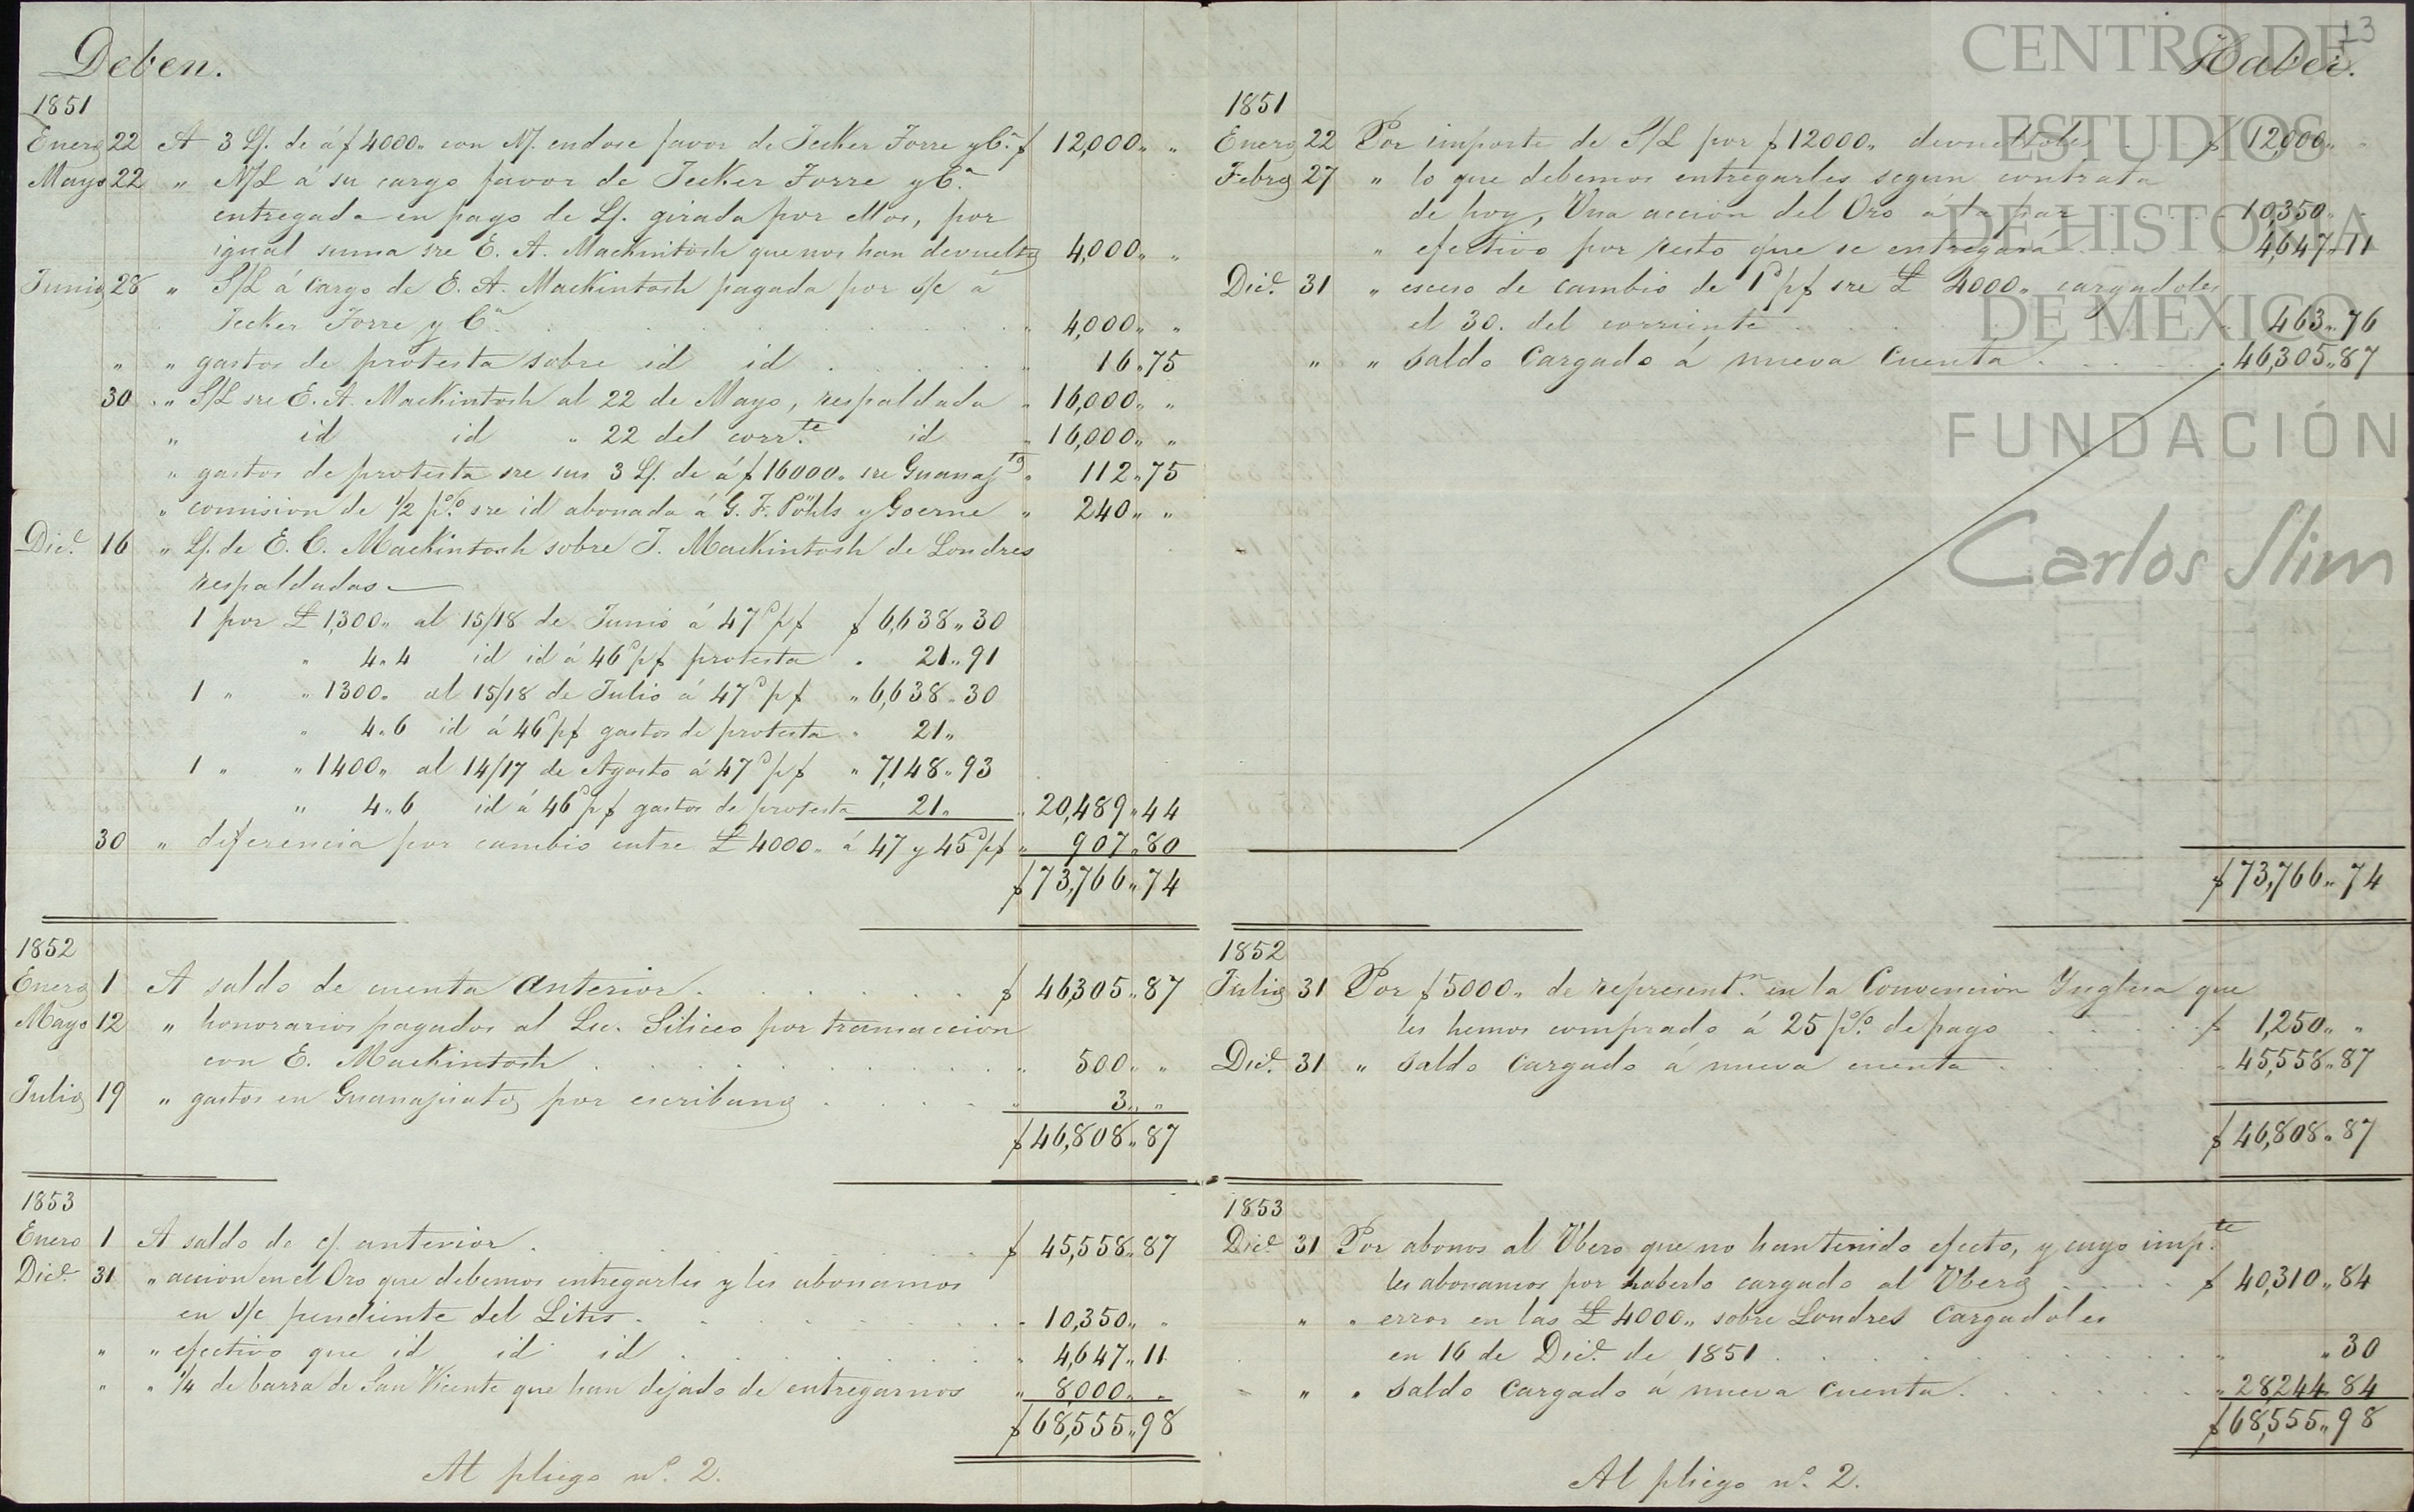 Deben.
1851
Enero 22 A 3 L/. de á $ 4000„ con N/. endose favor de Jecker Torre y Cª $ 12,000„ „
Mayo 22 „ N/L á su cargo favor de Jecker Torre y Cª
entregada en pago de L/. girada por ellos, por
igual suma sre E. A. Mackintosh que nos han devuelto 4,000„ „
Junio 28 „ S/L á cargo de E. A. Mackintosh pagada por s/c á
Jecker Torre y Cª . . . „ 4,000„ „
„ „ gastos de protesta sobre id id . . . „ 16„75
30 „ S/L sre E. A. Mackintosh al 22 de Mayo, respaldada „ 16,000„ „
„ id id „ 22 del corr.te id „ 16,000„ „
„ gastos de protesta sre sus 3 L/. de á $ 16000„ sre Guanajto „ 112„75
„ comision de 1/2 p% sre id abonada á G. F. Pöhls y Goerne „ 240„ „
Dice. 16 „ L/. de E. C. Mackintosh sobre J. Mackintosh de Londres
respaldadas—
1 por £ 1,300„ al 15/18 de Junio á 47 p$ $ 6,638„30
„ 4„4 id id á 46 p$ protesta „ 21„91
1 „ „ 1300„ al 15/18 de Julio á 47 p$ „ 6,638„30
„ 4„6 id á 46 p$ gastos de protesta „ 21„
1 „ „ 1400„ al 14/17 de Agosto á 47 p$ „ 7,148„93
„ 4„6 id á 46 p$ gastos de protesta 21„ „ 20,489„44
30 „ diferencia por cambio entre £ 4000„ á 47 y 45 p$ „ 907„80
$ 73,766„74
1852
Enero 1 A saldo de cuenta anterior . . . $ 46,305„87
Mayo 12 „ honorarios pagados al Lic. Siliceo por transaccion
con E. Mackintosh . . . „ 500„ „
Julio 19 „ gastos en Guanajuato por escribano . . . „ 3„ „
$ 46,808„87
1853
Enero 1 A saldo de c/. anterior . . . $ 45,558„87
Dice. 31 „ accion en el Oro que debemos entregarles y les abonamos
en s/c pendiente del Litis . . . „ 10,350„ „
„ „ efectivo que id id id . . . „ 4,647„11
„ „ 1/4 de barra de San Vicente que han dejado de entregarnos „ 8,000„ „
$ 68,555„98
Al pliego nº. 2.
13
Haber.
1851
Enero 22 Por importe de S/L por $ 12000„ devueltoles . . $ 12,000„ „
Febro 27 „ lo que debemos entregarles segun contrata
de hoy, Una accion del Oro á la par . . . „ 10,350„ „
„ efectivo por resto que se entregará . . „ 4,647„11
Dice. 31 „ esceso de cambio de 1 p$ sre £ 4000„ cargadoles
el 30. del corriente . . . „ 463„76
„ „ saldo cargado á nueva cuenta . . . „ 46,305„87
$ 73,766„74
1852
Julio 31 Por $ 5000„ de represent.n en la Convencion Ynglesa que
les hemos comprado á 25 p% de pago . . . $ 1,250„ „
Dice. 31 „ saldo cargado á nueva cuenta . . . „ 45,558„87
$ 46,808„87
1853
Dice. 31 Por abonos al Ubero que no han tenido efecto, y cuyo imp.te
les abonamos por haberlo cargado al Ubero . . . $ 40,310„84
„ „ error en las £ 4000„ sobre Londres cargadoles
en 16 de Dice. de 1851 . . . „ „30
„ „ saldo cargado á nueva cuenta . . . „ 28,244„84
$ 68,555„98
Al pliego nº. 2.
CENTRO DE
ESTUDIOS
DE HISTORIA
DE MÉXICO
FUNDACIÓN
Carlos Slim